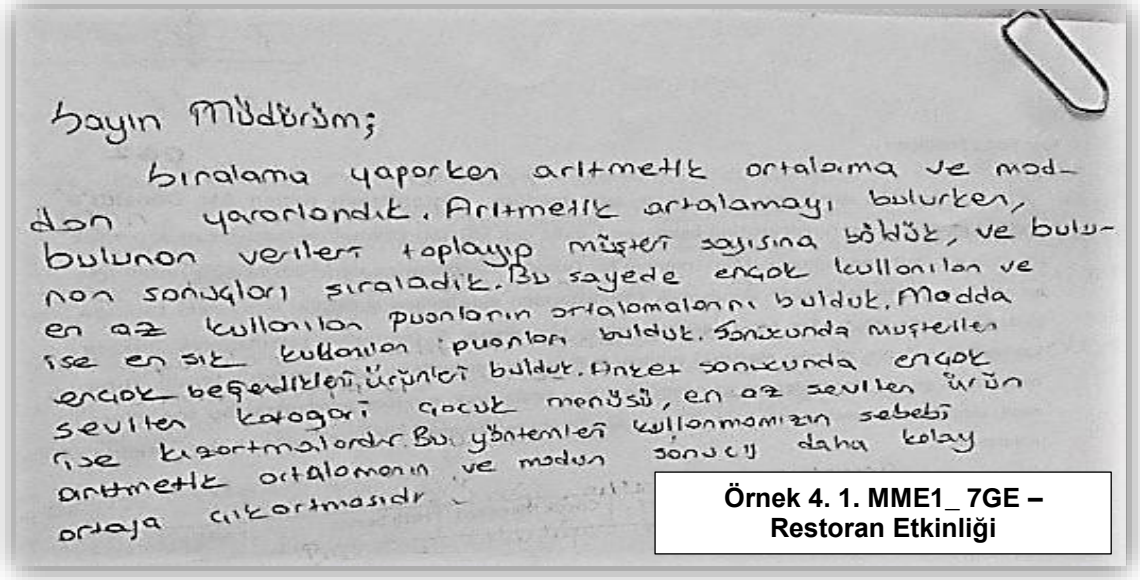 Sayın Müdürüm;
Sıralama yaparken aritmetik ortalama ve mod-
dan yararlandık. Aritmetik ortalamayı bulurken,
bulunan verileri toplayıp müşteri sayısına böldük, ve bulu-
nan sonuçları sıraladık. Bu sayede ençok kullanılan ve
en az kullanılan puanların ortalamalarını bulduk. Modda
ise en sık kullanılan puanları bulduk. Sonucunda müşterilen
ençok beğendikleri, ürünleri bulduk. Anket sonucunda ençok
sevilen katagari çocuk menüsü, en az sevilen ürün
ise kızartmalardır. Bu yöntemleri kullanmamızın sebebi
aritmetik ortalamanın ve modun sonucu daha kolay
ortaya çıkartmasıdır.
Örnek 4. 1. MME1_ 7GE –
Restoran Etkinliği